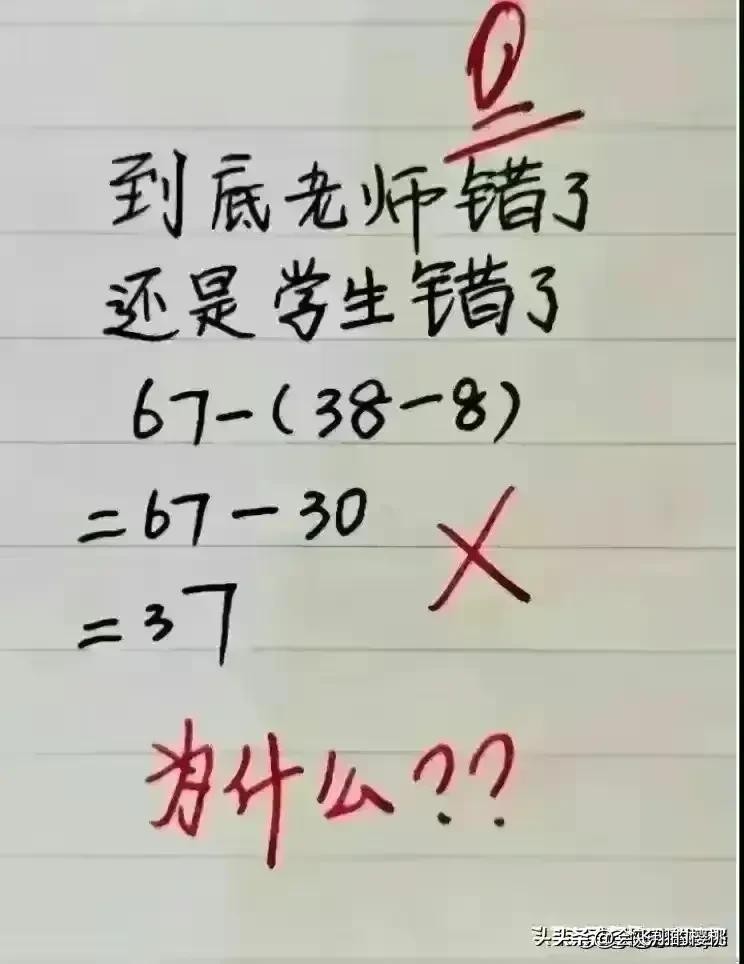 0
到底老师错了
还是学生错了
67-(38-8)
=67-30
=37
为什么??